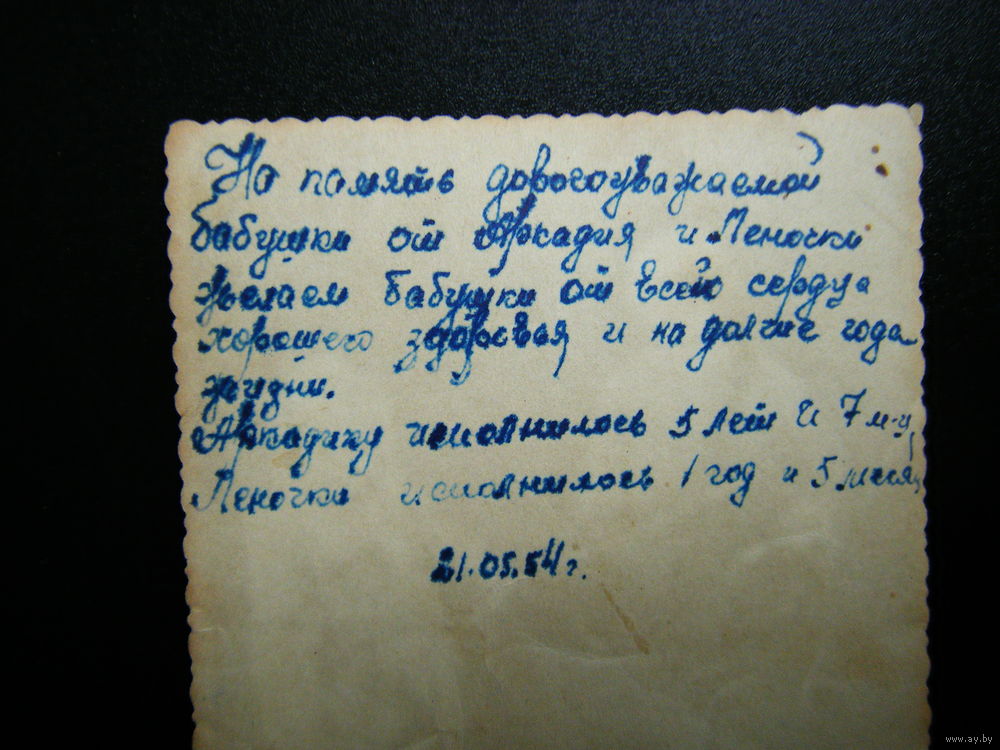 На память дорогоуважаемой
бабушки от Аркадия и Леночки
желаем бабушки от всего сердца
хорошего здоровья и на долгие года
жизни.
Аркадику исполнилось 5 лет и 7 м-ц
Леночки исполнилось 1 год и 5 меся
21.05.54г.
www.ay.by